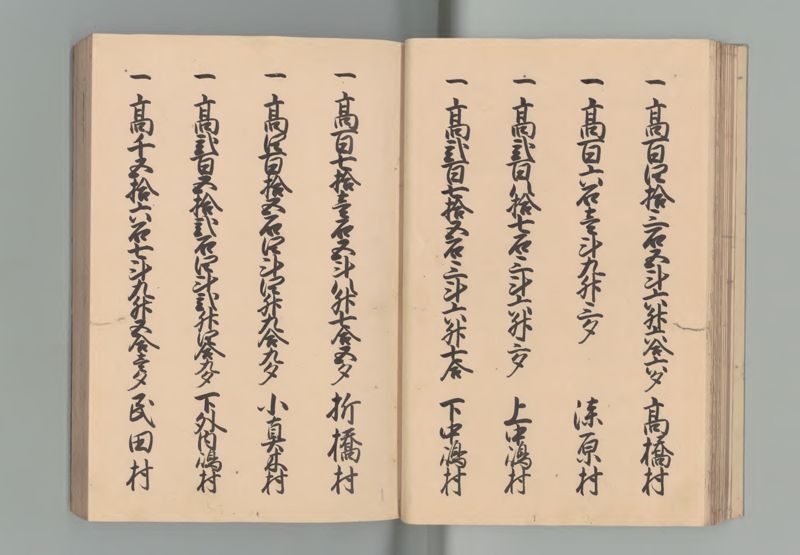 一高百四拾三石五斗六升六合六夕 高橋村
一高百六石壱斗九升三夕 漆原村
一高弐百八拾七石三斗六升三夕 上中嶋村
一高弐百七拾五石三斗六升七合 下中嶋村
一高百七拾壱石五斗八升七合五夕 折橋村
一高四百拾五石四斗四升九合九夕 小真木村
一高弐百五拾弐石四斗弐升四合九夕 下外内嶋村
一高千五拾六石七斗九升五合壱夕 民田村